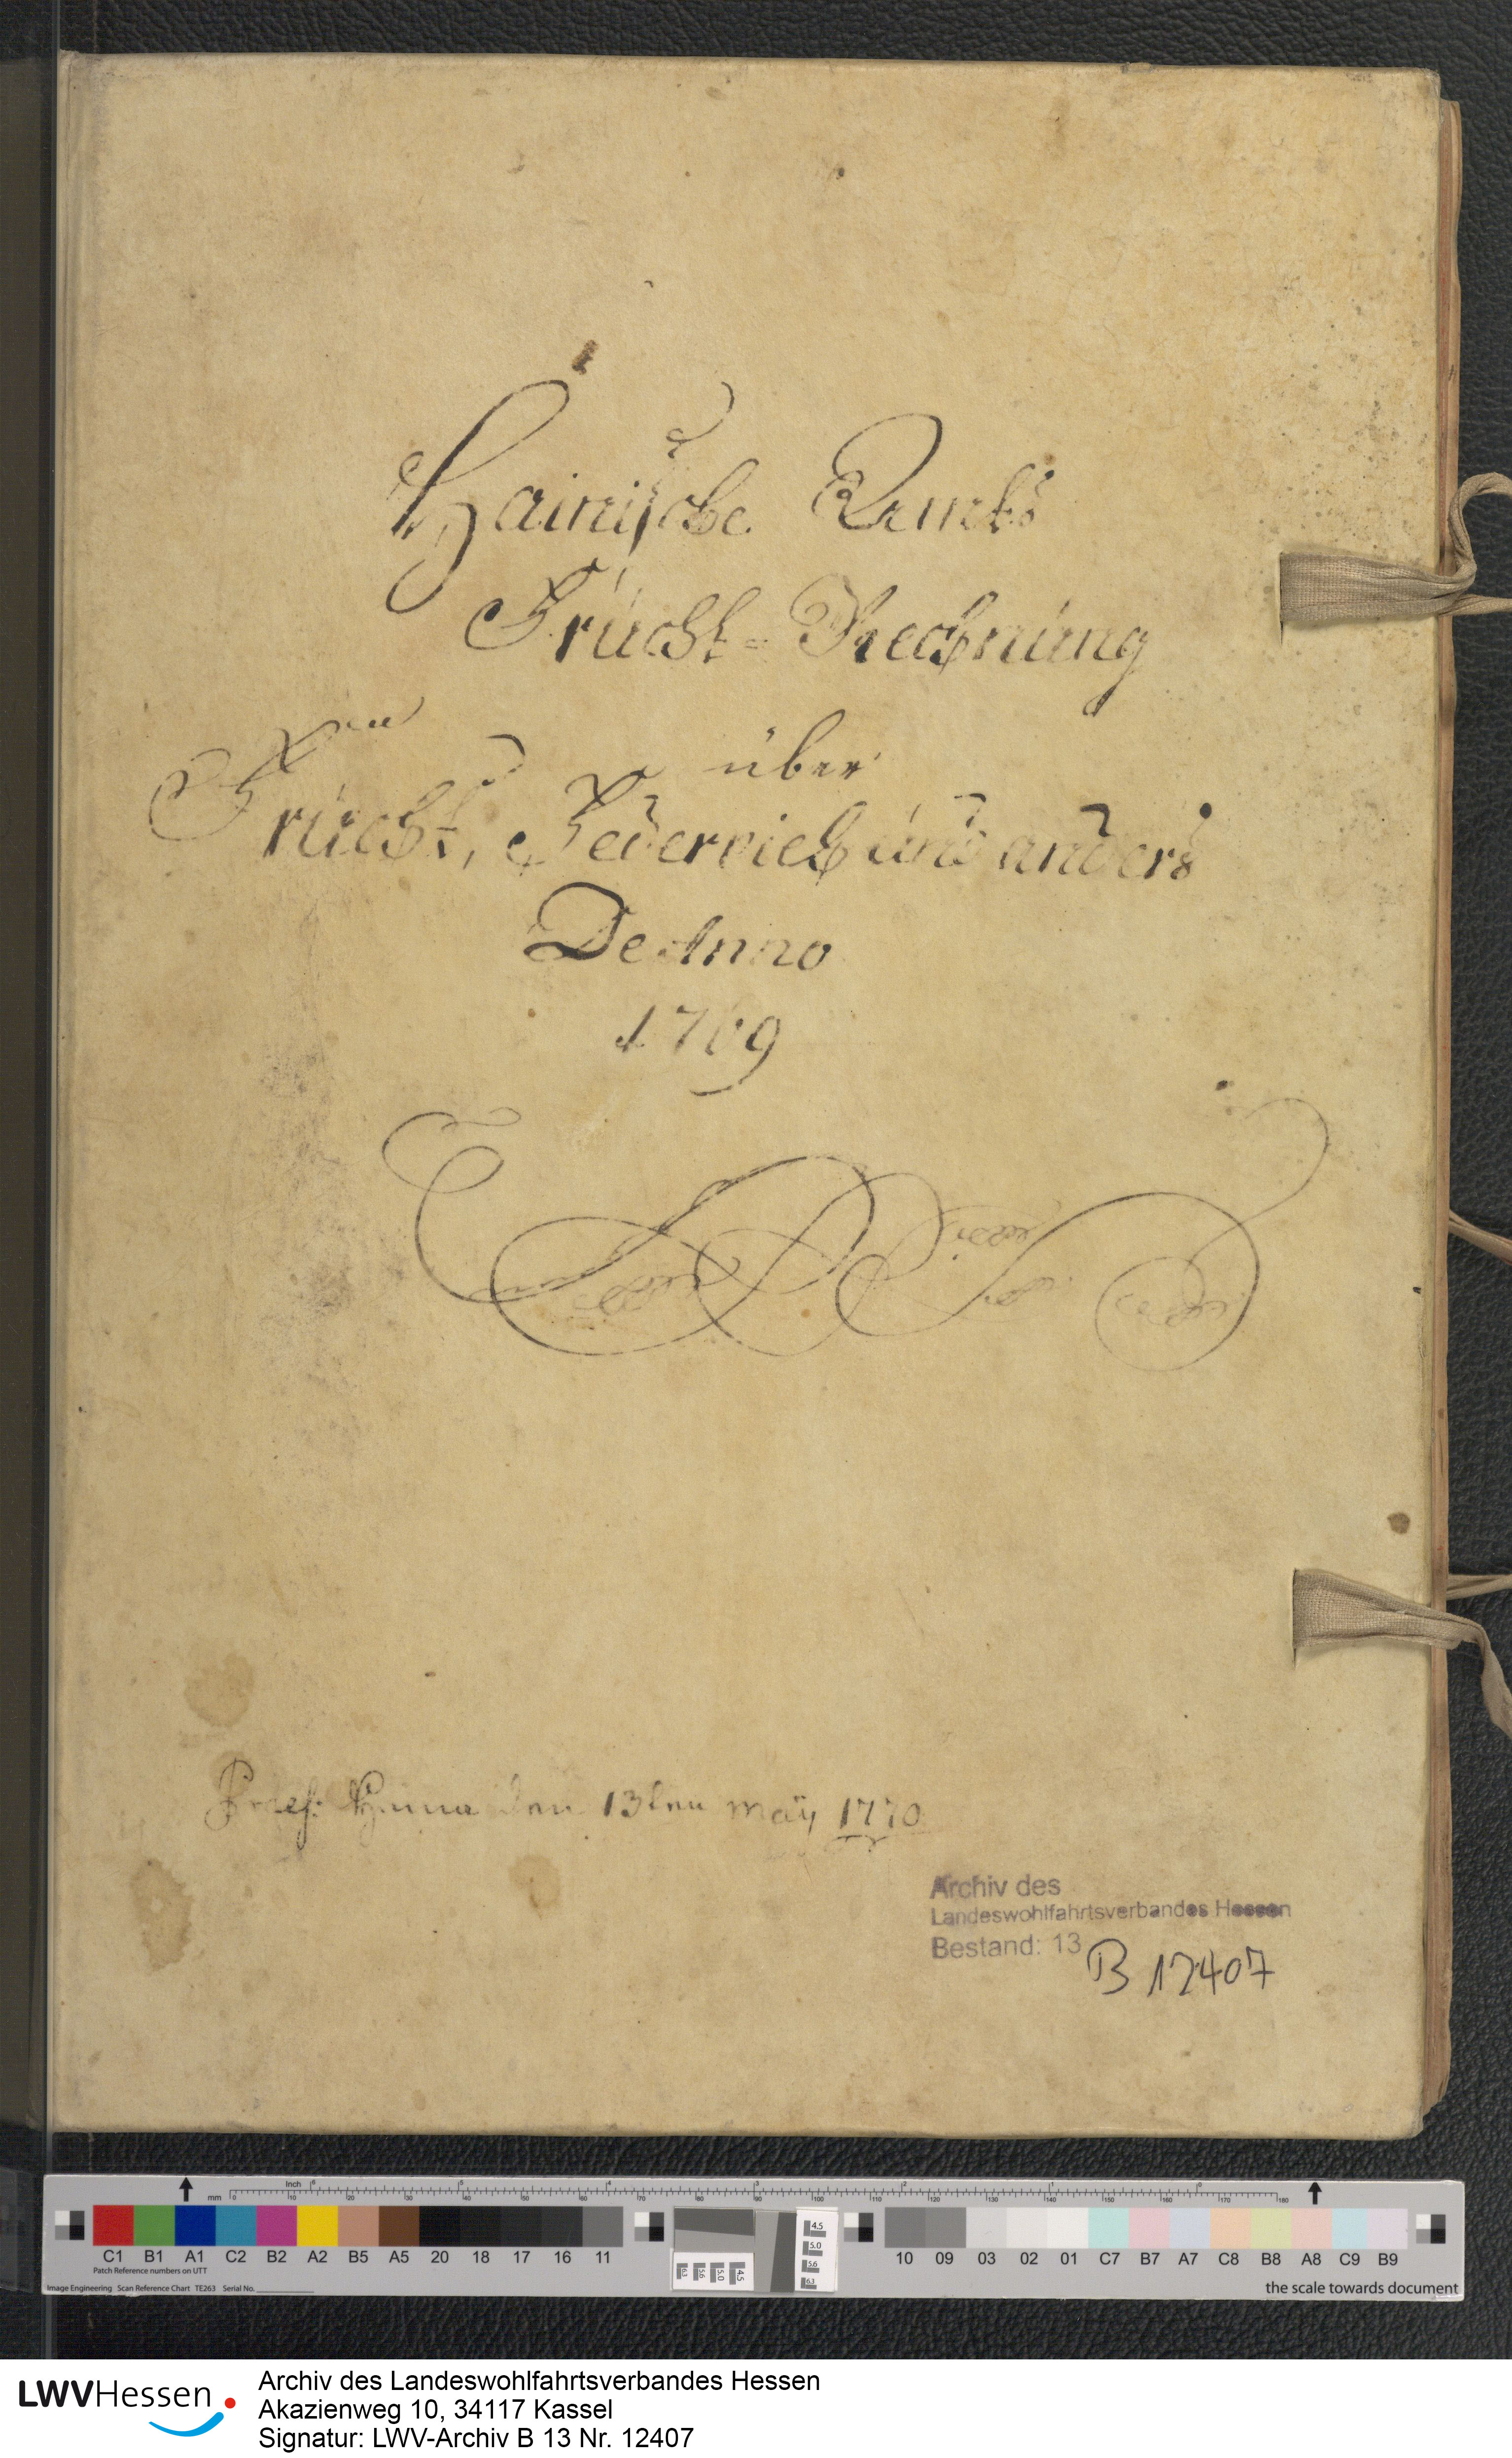 Hainische Ambts
Frucht-Rechnung
über
Frucht, Federvieh und anders
De Anno
1769
Praes: Hayna den 13ten Maÿ 1770
Archiv des
Landeswohlfahrtsverbandes Hessen
Bestand: 13
B 12407
mm Inch
C1 B1 A1 C2 B2 A2 B5 A5 20 18 17 16 11 10 09 03 02 01 C7 B7 A7 C8 B8 A8 C9 B9
Patch Reference numbers on UTT
Image Engineering Scan Reference Chart TE263 Serial No.
the scale towards document
LWVHessen
Archiv des Landeswohlfahrtsverbandes Hessen
Akazienweg 10, 34117 Kassel
Signatur: LWV-Archiv B 13 Nr. 12407